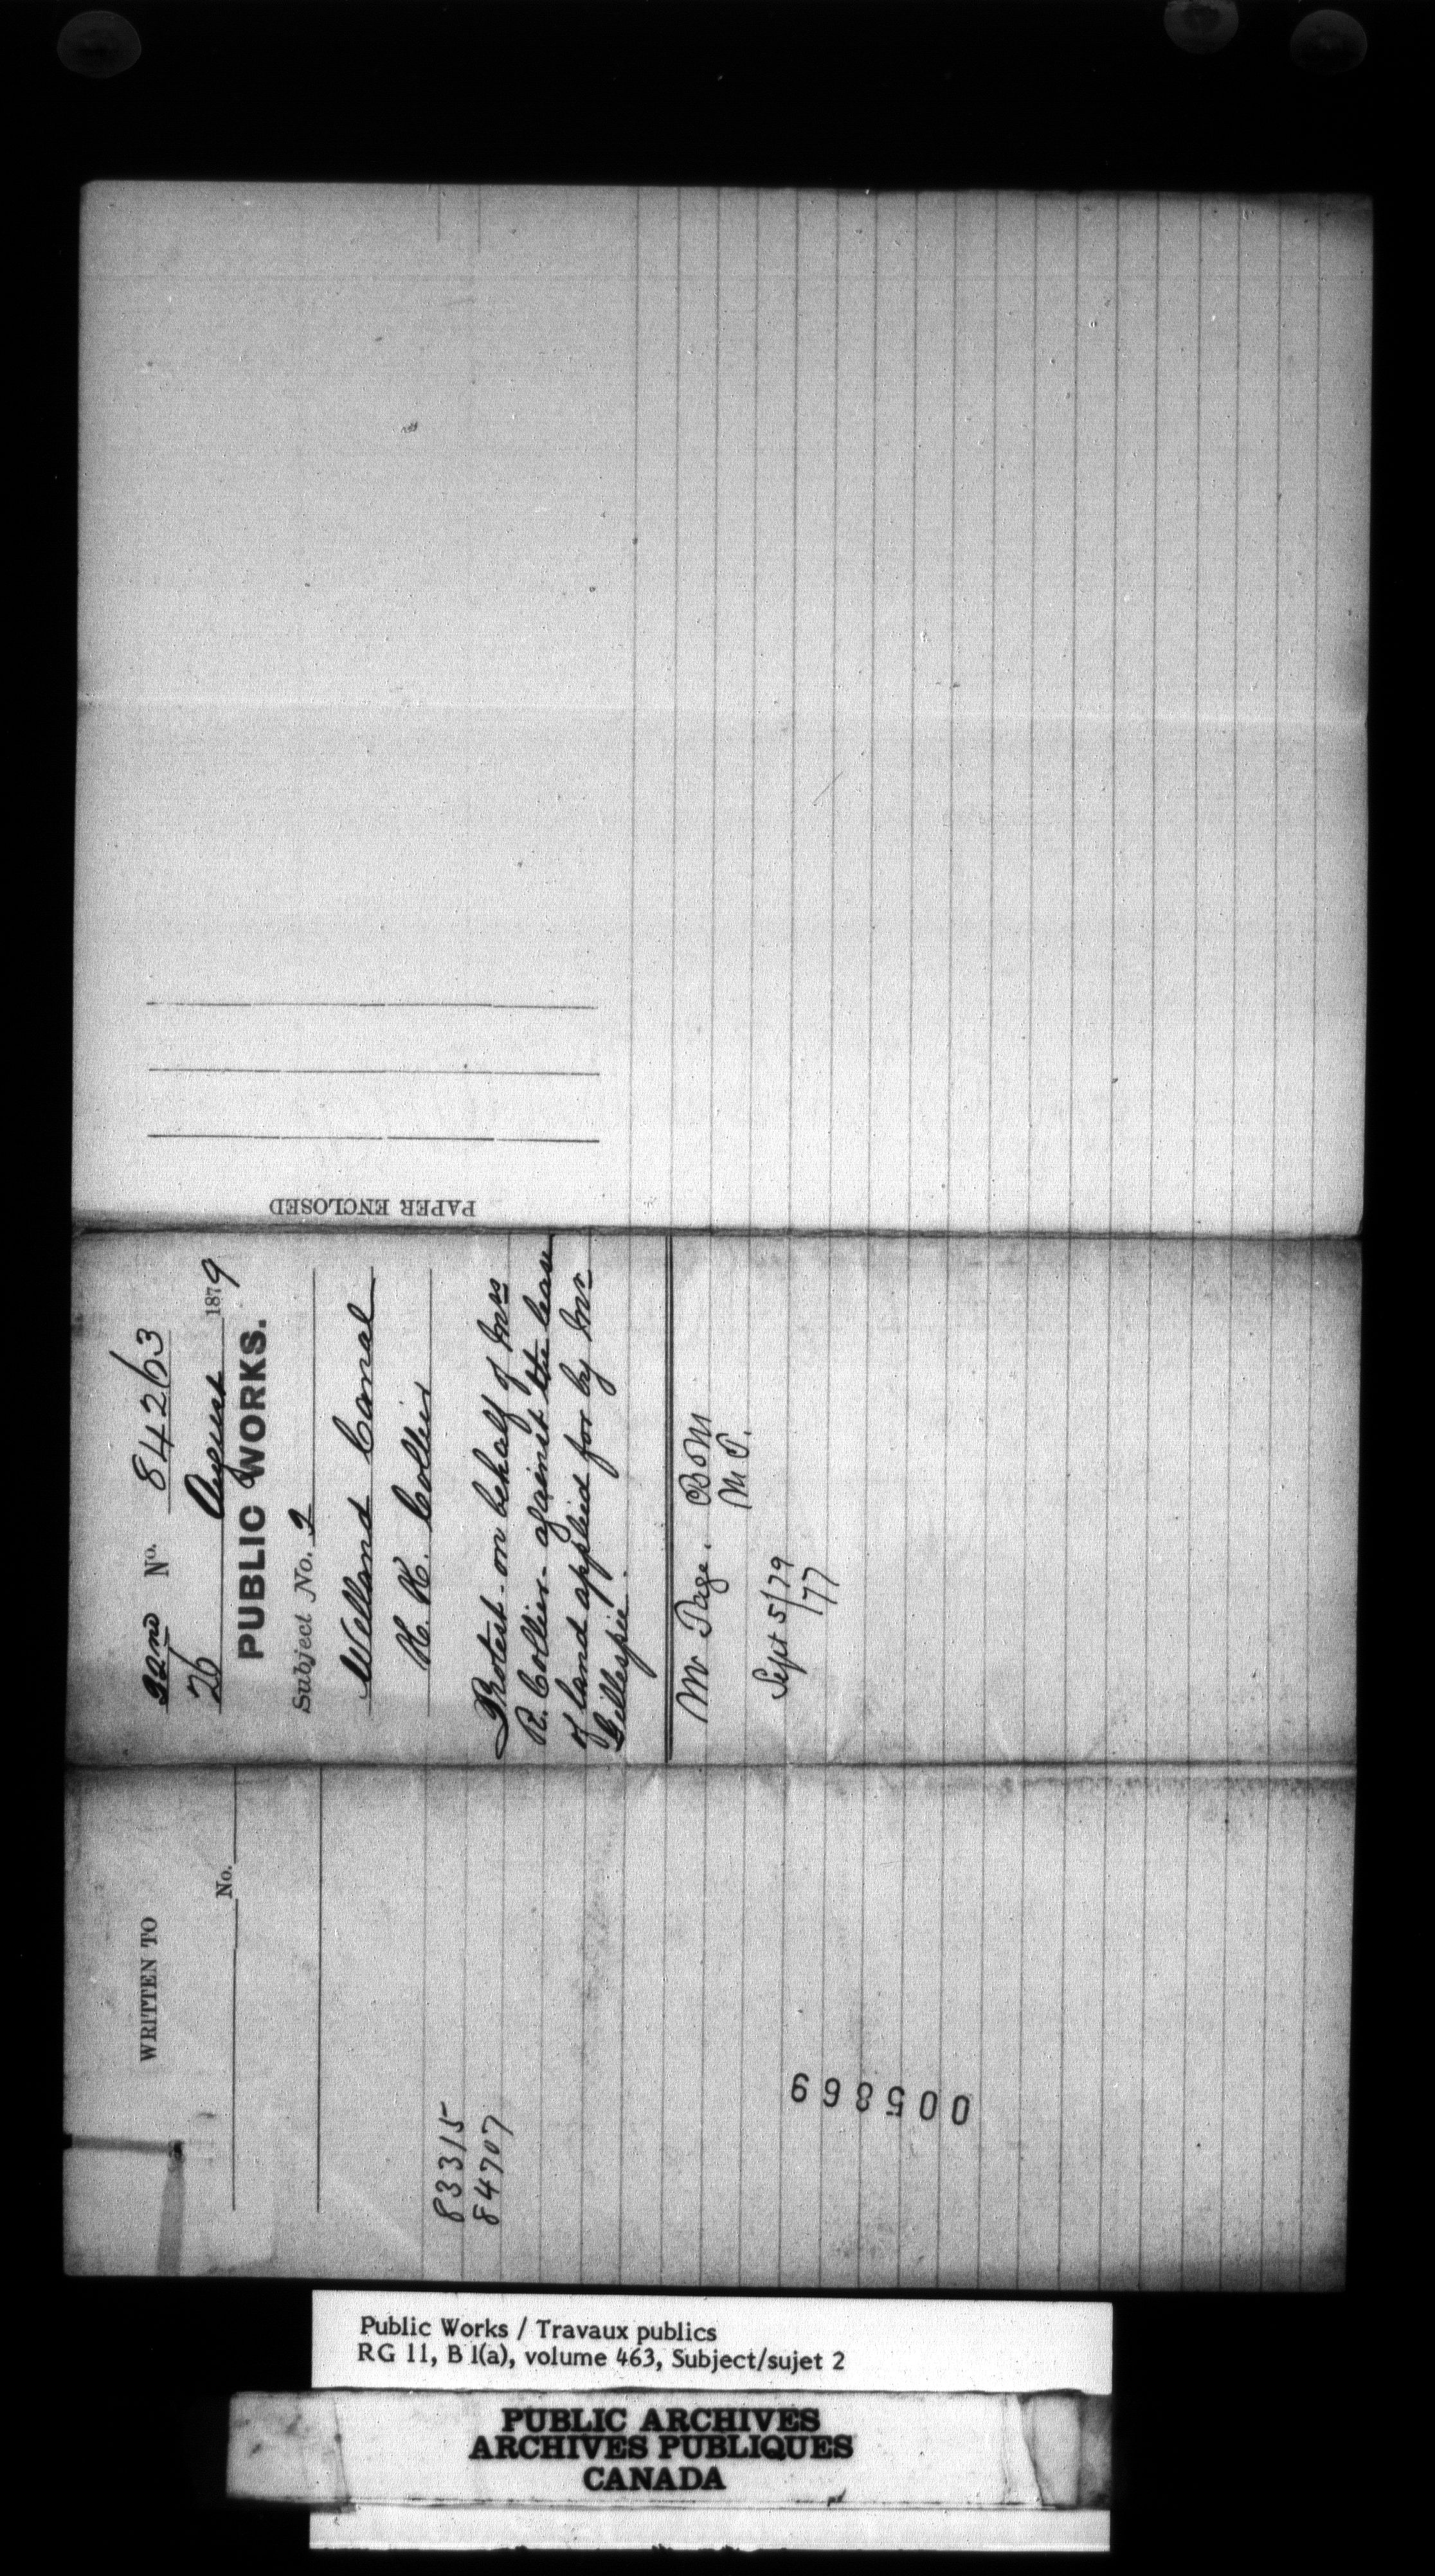 PAPER ENCLOSED
22nd No. 84263
26 August 1879
PUBLIC WORKS.
Subject No. 2
Welland Canal
H. H. Collier
Protest - on behalf of Mrs
R. Collier - against the lease
of land applied for by Mr
Gillespie.
Mr Page.
Sept 5/79
/77
WRITTEN TO
No.
83315
84707
005869
Public Works / Travaux publics
RG 11, B 1(a), volume 463, Subject/sujet 2
PUBLIC ARCHIVES
ARCHIVES PUBLIQUES
CANADA